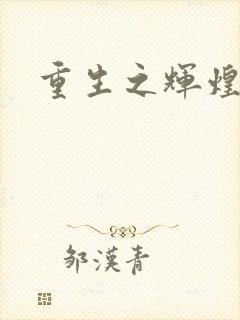 重生之輝煌
邹漢青